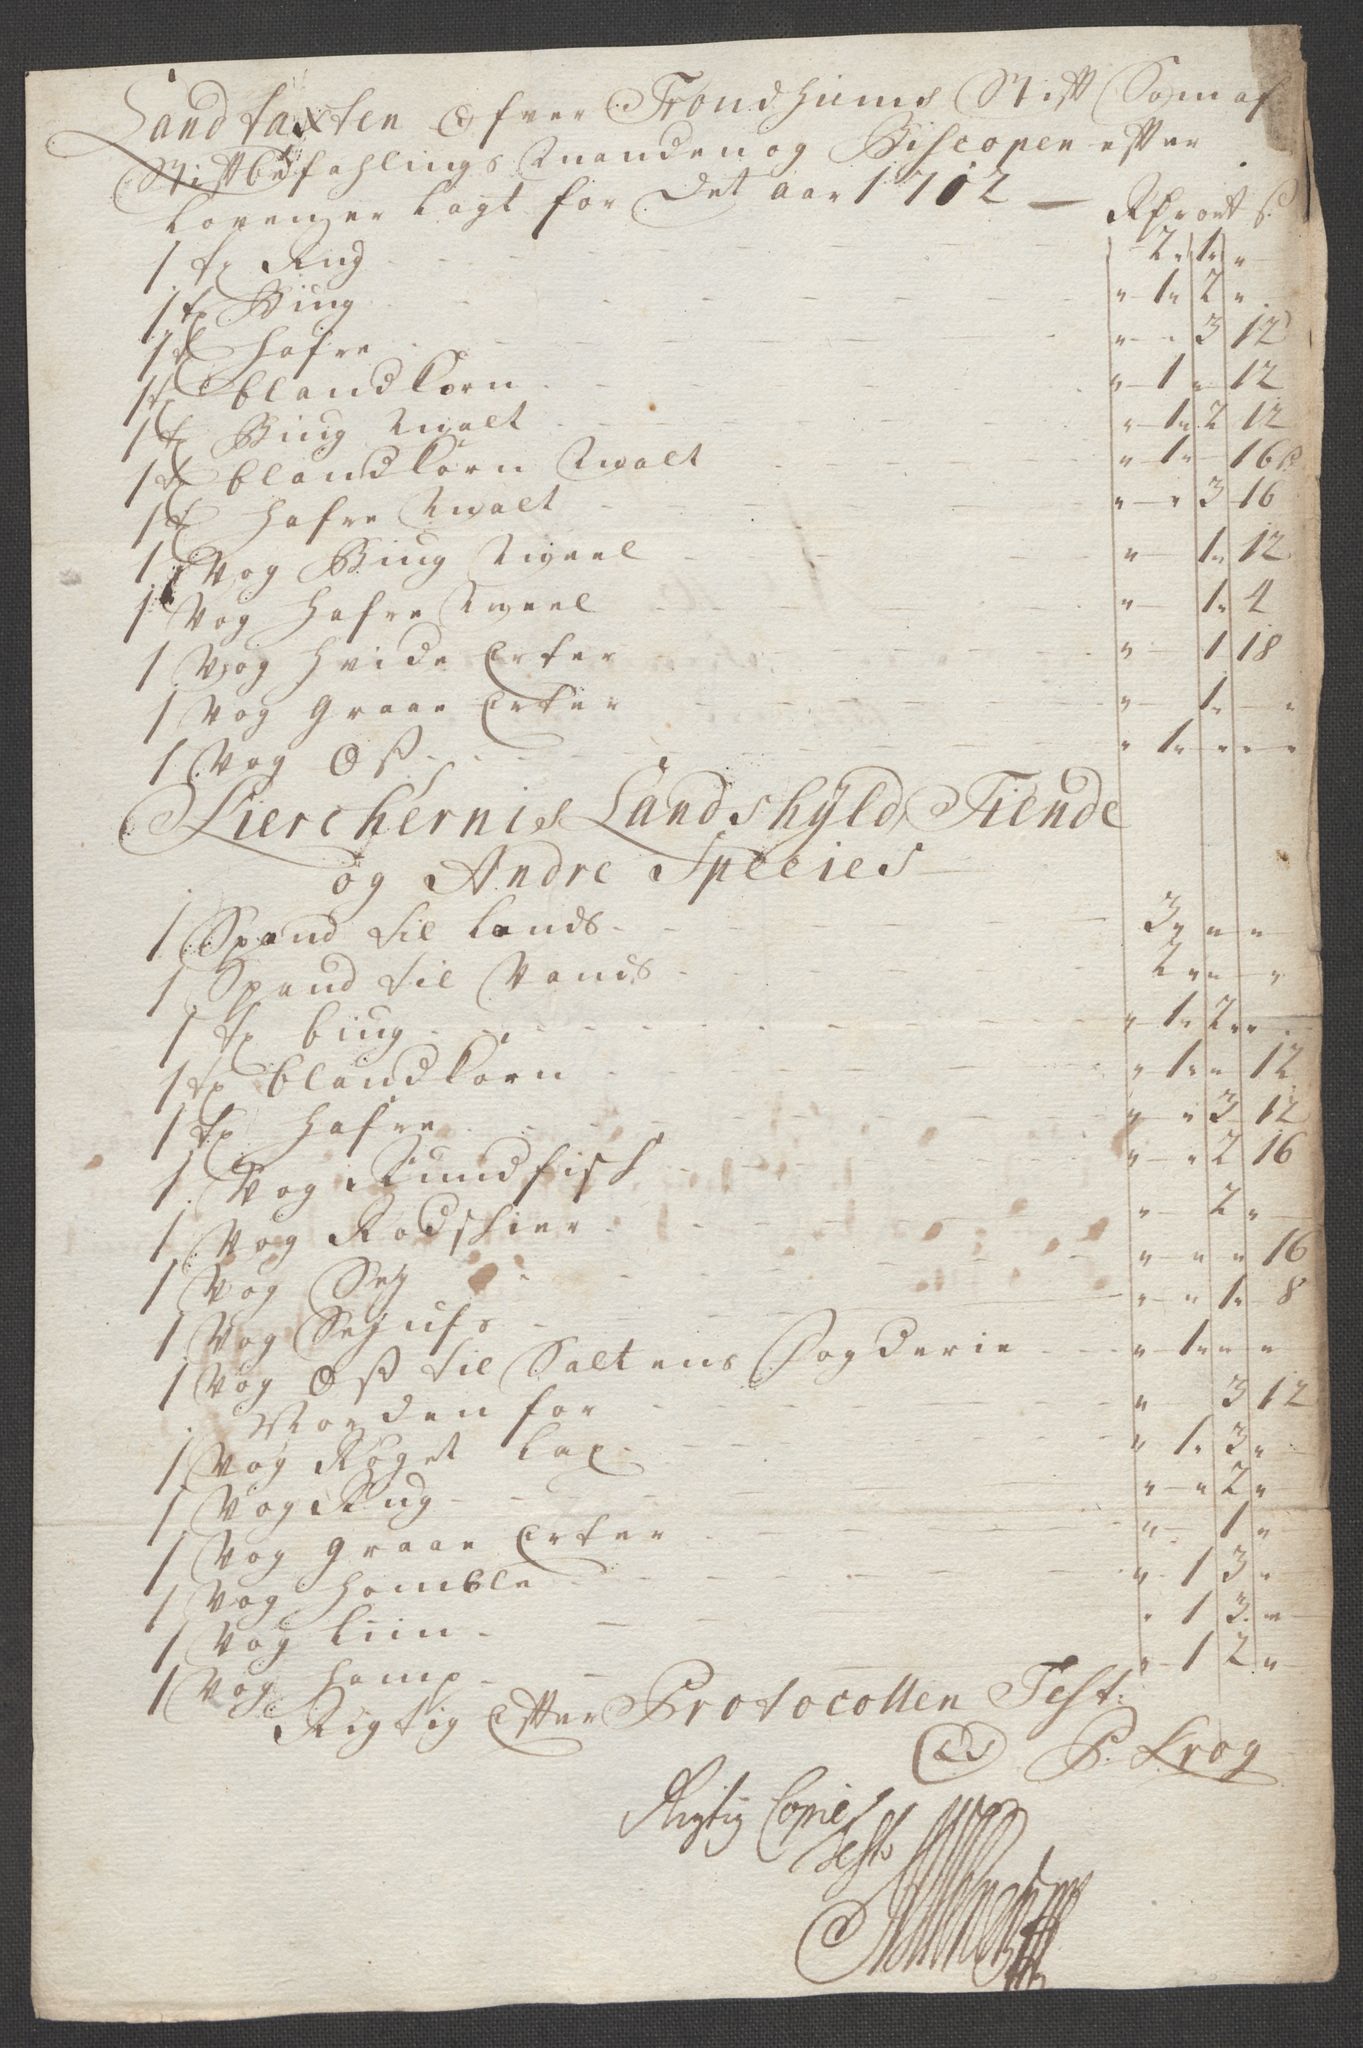 Landtaxten Ofver Trondhiems Stift Som af
Stiftbefahlings Manden og Biscopen efter
Loven er Lagt for Det aar 1712 — Rh ort s
1 tø Rug - - - 2 " 1 " "
1 tø Biug - - - " 1 " 2 "
1 tø hafre - - - " " 3 12
1 tø blandkorn - - - " 1 " 12
1 tø Biug Malt - - - " 1 " 2 12
1 tø blandkorn Malt - - - " 1 " 16 s
1 tø hafre Malt - - - " " 3 16
1 Vog Biug Meel - - - " 1 " 12
1 Vog hafre Meel - - - " 1 " 4
1 Vog hvide Erter - - - " 1 18
1 Vog graae Erter - - - " 1 " "
1 Vog Ost - - - " 1 " " "
Kierchernis Landskyld, Tiende
og Andre Species
1 Spand til Lands - - - 3 " " "
1 Spand til Vands - - - 2 " " "
1 tø biug - - - " 1 " 2 " "
1 tø blandkorn - - - " 1 " " 12
1 tø hafre - - - " " 3 12
1 Vog Rundfisk - - - " " 2 16
1 Vog Rodskier - - - " 2 "
1 Vog Sej - - - " " " 16
1 Vog Sej ufs - - - " " 1 " 8
1 Vog Ost til Saltens Fogderie - - - " 1 " " "
Norden for - - - " 3 12
1 Vog Røget Lax - - - " 1 " 3 "
1 Vog Rug - - - " " 2 "
1 Vog graae Erter - - - " 1 "
1 Vog homble - - - " 1 3 "
1 Vog Liin - - - " 1 3 "
1 Vog hamp - - - " 1 2 "
Rigtig Efter Protocollen Test:
P. Krog
Rigtig Copie
Test